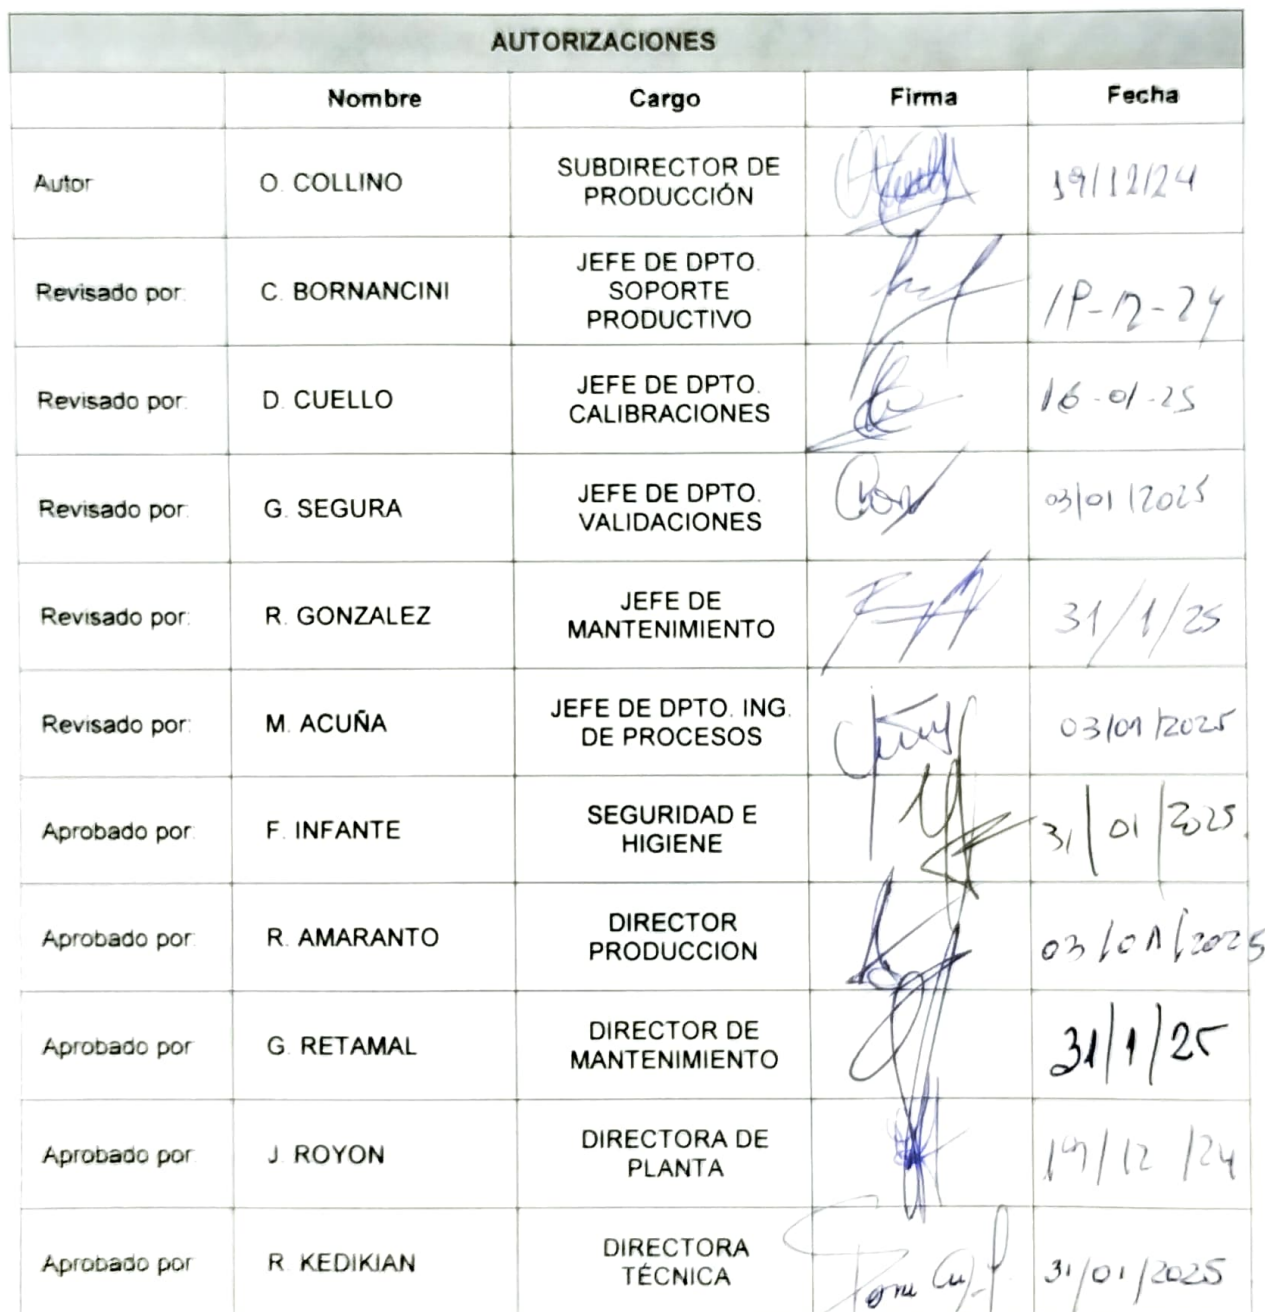 AUTORIZACIONES
Nombre Cargo Firma Fecha
Autor O. COLLINO SUBDIRECTOR DE PRODUCCIÓN 19/12/24
Revisado por: C. BORNANCINI JEFE DE DPTO. SOPORTE PRODUCTIVO
Revisado por: D. CUELLO JEFE DE DPTO. CALIBRACIONES 16-01-25
Revisado por: G. SEGURA JEFE DE DPTO. VALIDACIONES 03/01/2025
Revisado por: R. GONZALEZ JEFE DE MANTENIMIENTO 31/1/25
Revisado por: M. ACUÑA JEFE DE DPTO. ING. DE PROCESOS 03/01/2025
Aprobado por: F. INFANTE SEGURIDAD E HIGIENE 31/01/2025
Aprobado por: R. AMARANTO DIRECTOR PRODUCCION 03/01/2025
Aprobado por G. RETAMAL DIRECTOR DE MANTENIMIENTO 31/1/25
Aprobado por J. ROYON DIRECTORA DE PLANTA 19/12/24
Aprobado por R. KEDIKIAN DIRECTORA TÉCNICA 31/01/2025